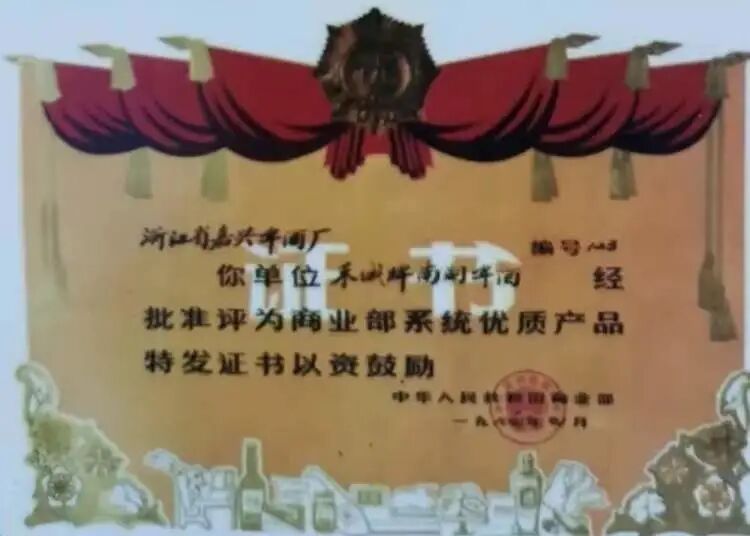 证书
浙江省嘉兴啤酒厂 编号
你单位 牌 啤酒 经
批准评为商业部系统优质产品
特发证书以资鼓励
中华人民共和国商业部
一九八 年 月